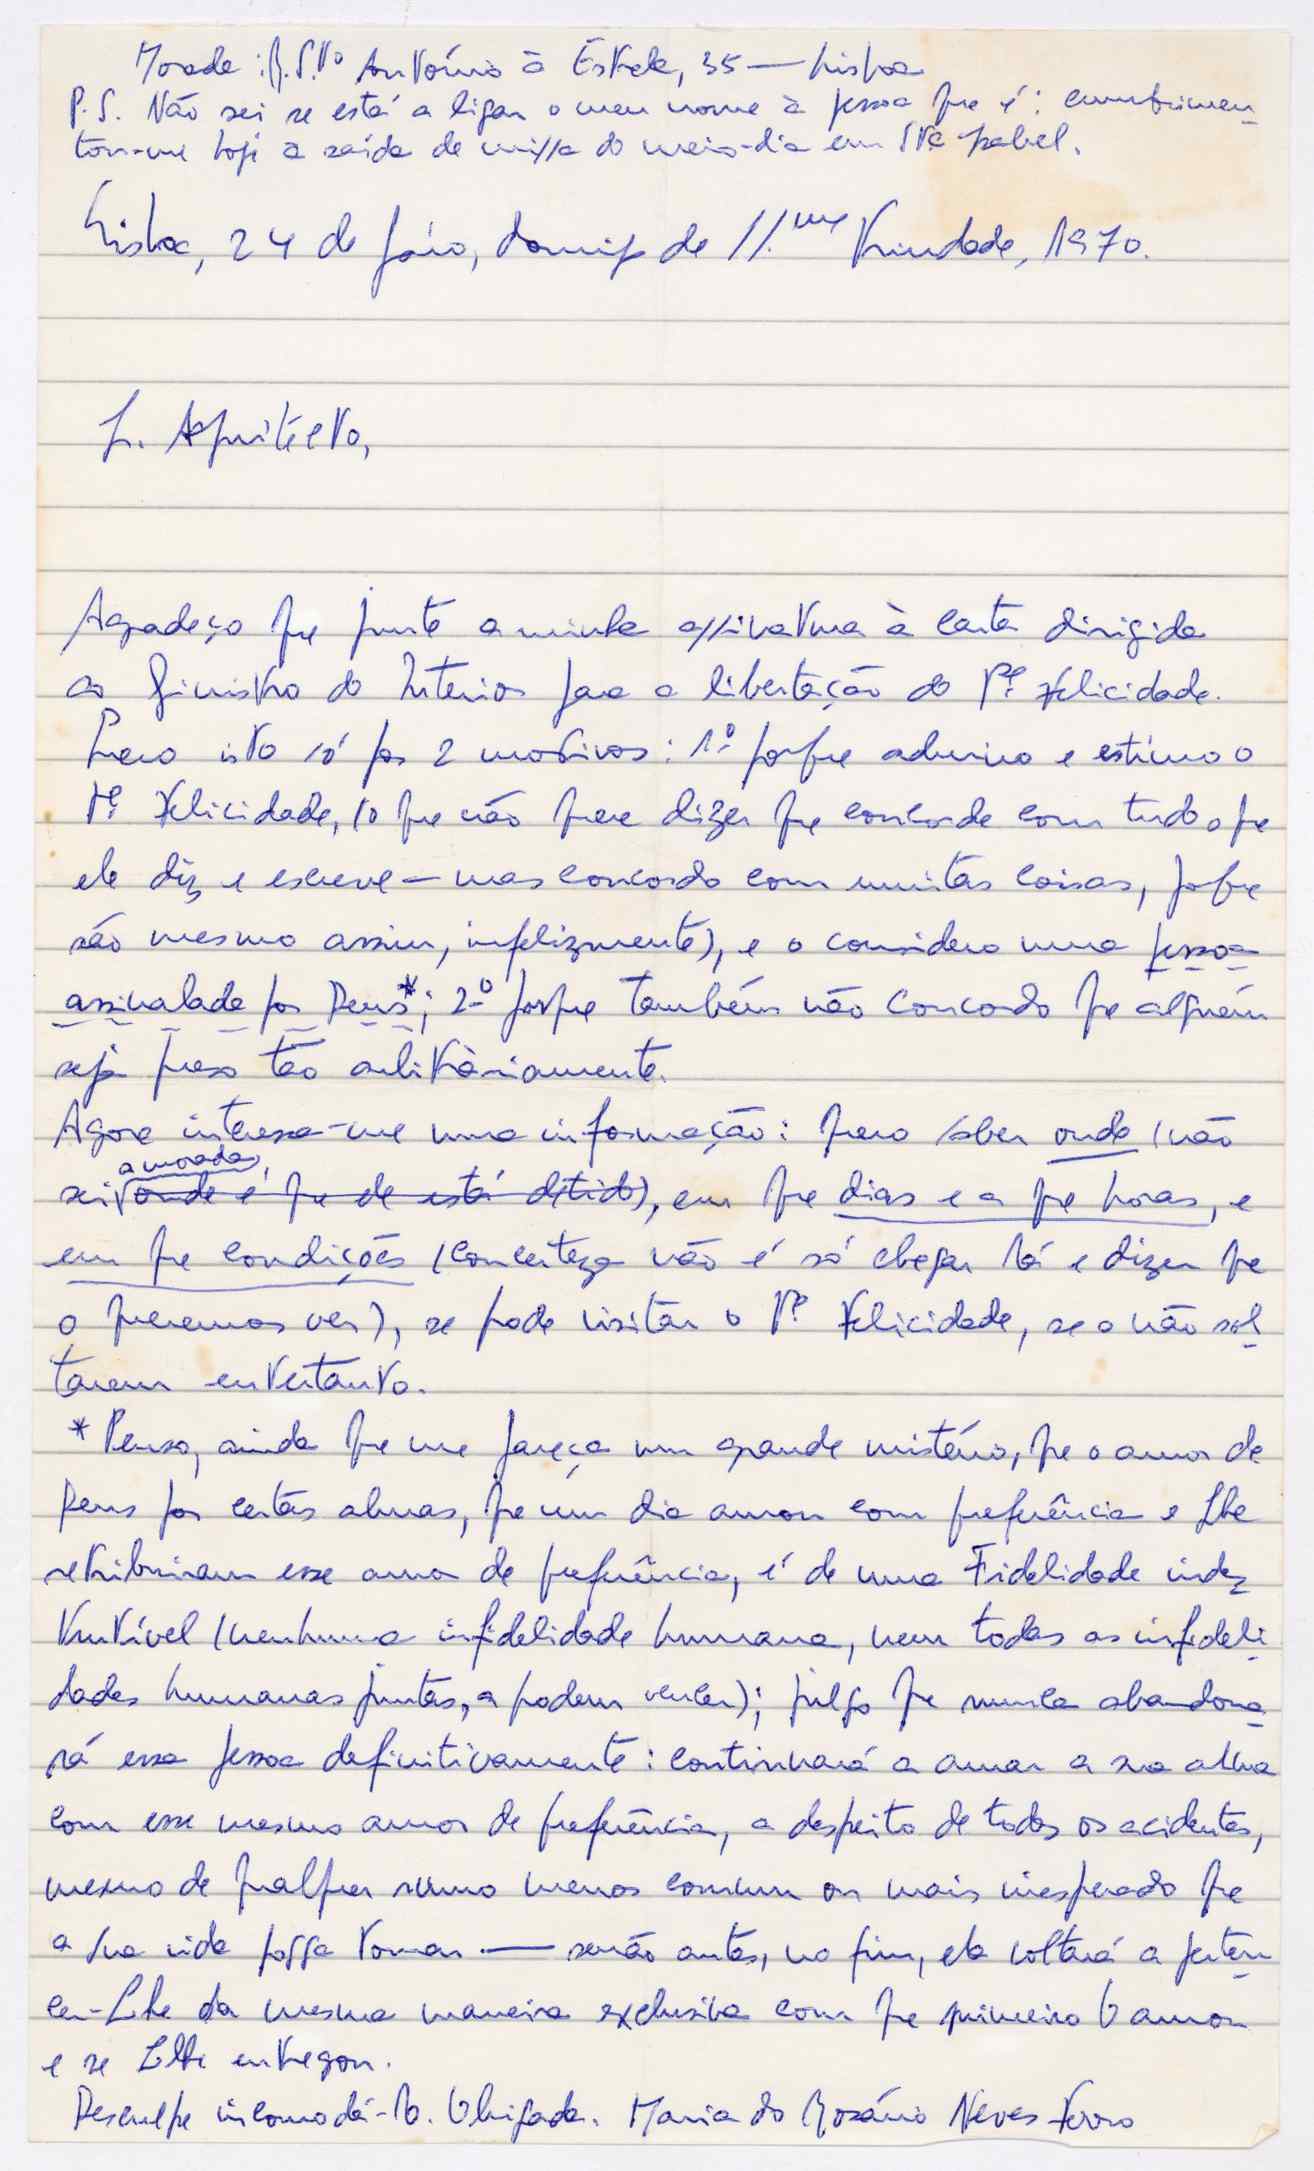 Morada: R. S.to António à Estrela, 35 — Lisboa
P.S. Não sei se está a ligar o meu nome à pessoa que é: cumprimen-
tou-me hoje à saída da missa do meio-dia em St.ª Isabel.
Lisboa, 24 de Maio, domingo da SS.ma Trindade, 1970.
Sr. Arquitecto,
Agradeço que junte a minha assinatura à carta dirigida
ao Ministro do Interior para a libertação do P.e Felicidade.
Quero isto só por 2 motivos: 1.º porque admiro e estimo o
P.e Felicidade, (o que não quere dizer que concorde com tudo o que
ele diz e escreve — mas concordo com muitas coisas, porque
são mesmo assim, infelizmente), e o considero uma pessoa
assinalada por Deus*; 2.º porque também não concordo que alguém
seja preso tão arbitràriamente.
Agora interessa-me uma informação: quero saber onde (não
sei a morada, onde é que ele está detido), em que dias e a que horas, e
em que condições (concerteza não é só chegar lá e dizer que
o queremos ver), se pode visitar o P.e Felicidade, se o não sol-
tarem entretanto.
* Penso, ainda que me pareça um grande mistério, que o amor de
Deus por certas almas, que um dia amou com preferência e Lhe
retribuiram esse amor de preferência, é de uma Fidelidade indes-
trutível (nenhuma infidelidade humana, nem todas as infideli-
dades humanas juntas, a podem vencer); julgo que nunca abandona-
rá essa pessoa definitivamente: continuará a amar a sua alma
com esse mesmo amor de preferência, a despeito de todos os acidentes,
mesmo de qualquer rumo menos comum ou mais inesperado que
a sua vida possa tomar — senão antes, no fim, ela voltará a perten-
cer-Lhe da mesma maneira exclusiva com que primeiro O amou
e se Lhe entregou.
Desculpe incomodá-lo. Obrigada. Maria do Rosário Neves Ferro